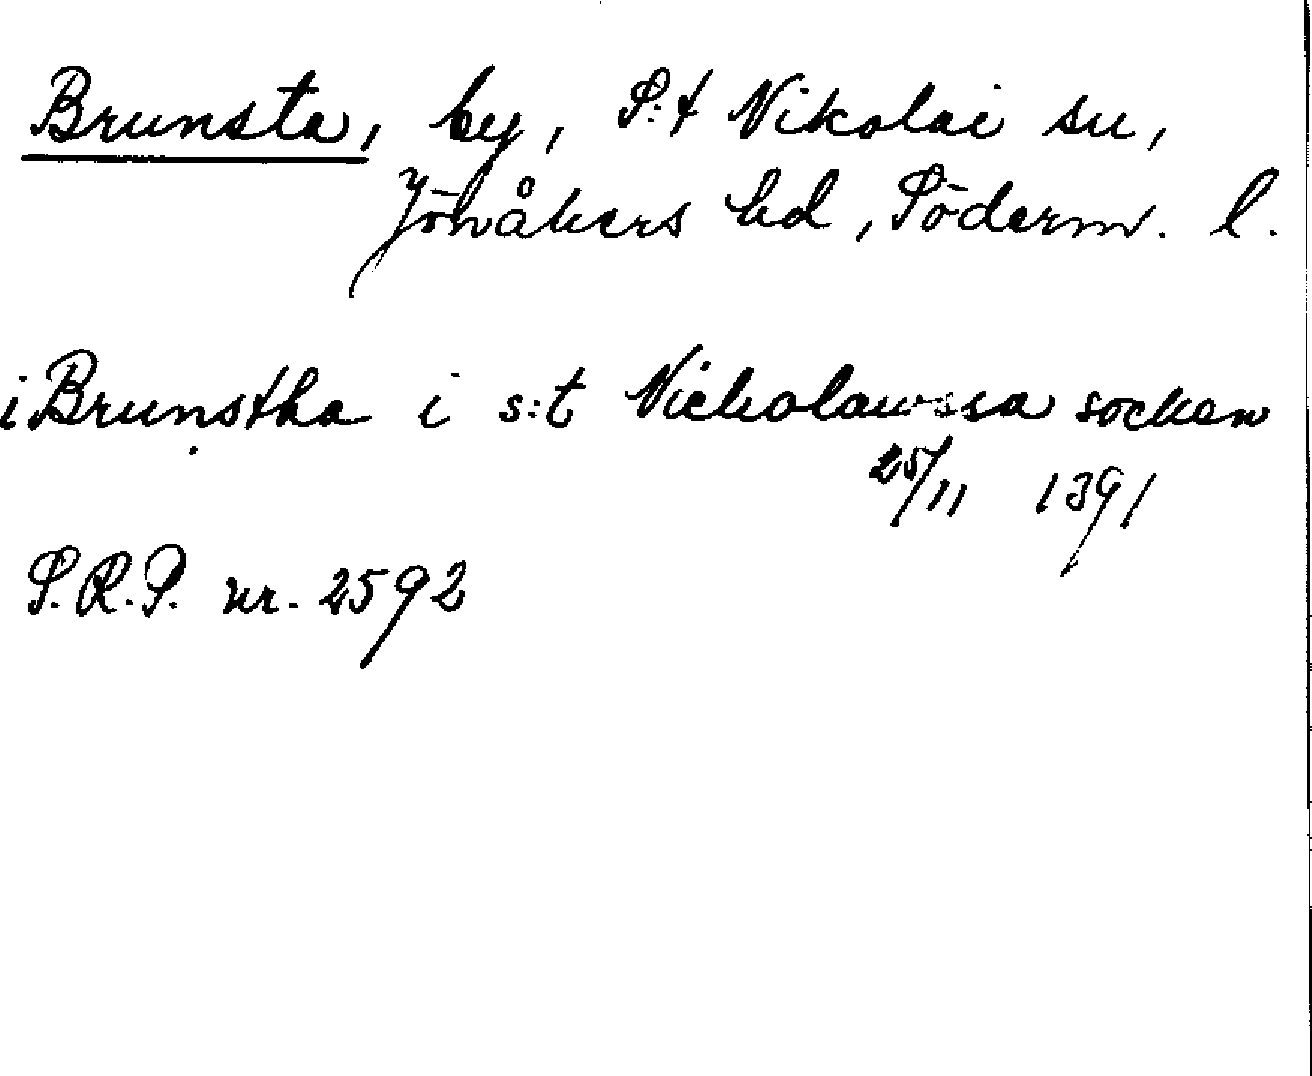 Brunsta, by, S:t Nikolai sn,
Jönåkers hd, Söderm. l.
i Brunstha i s:t Nicholawssa socken
25/11 1391
S.R.P. nr. 2592